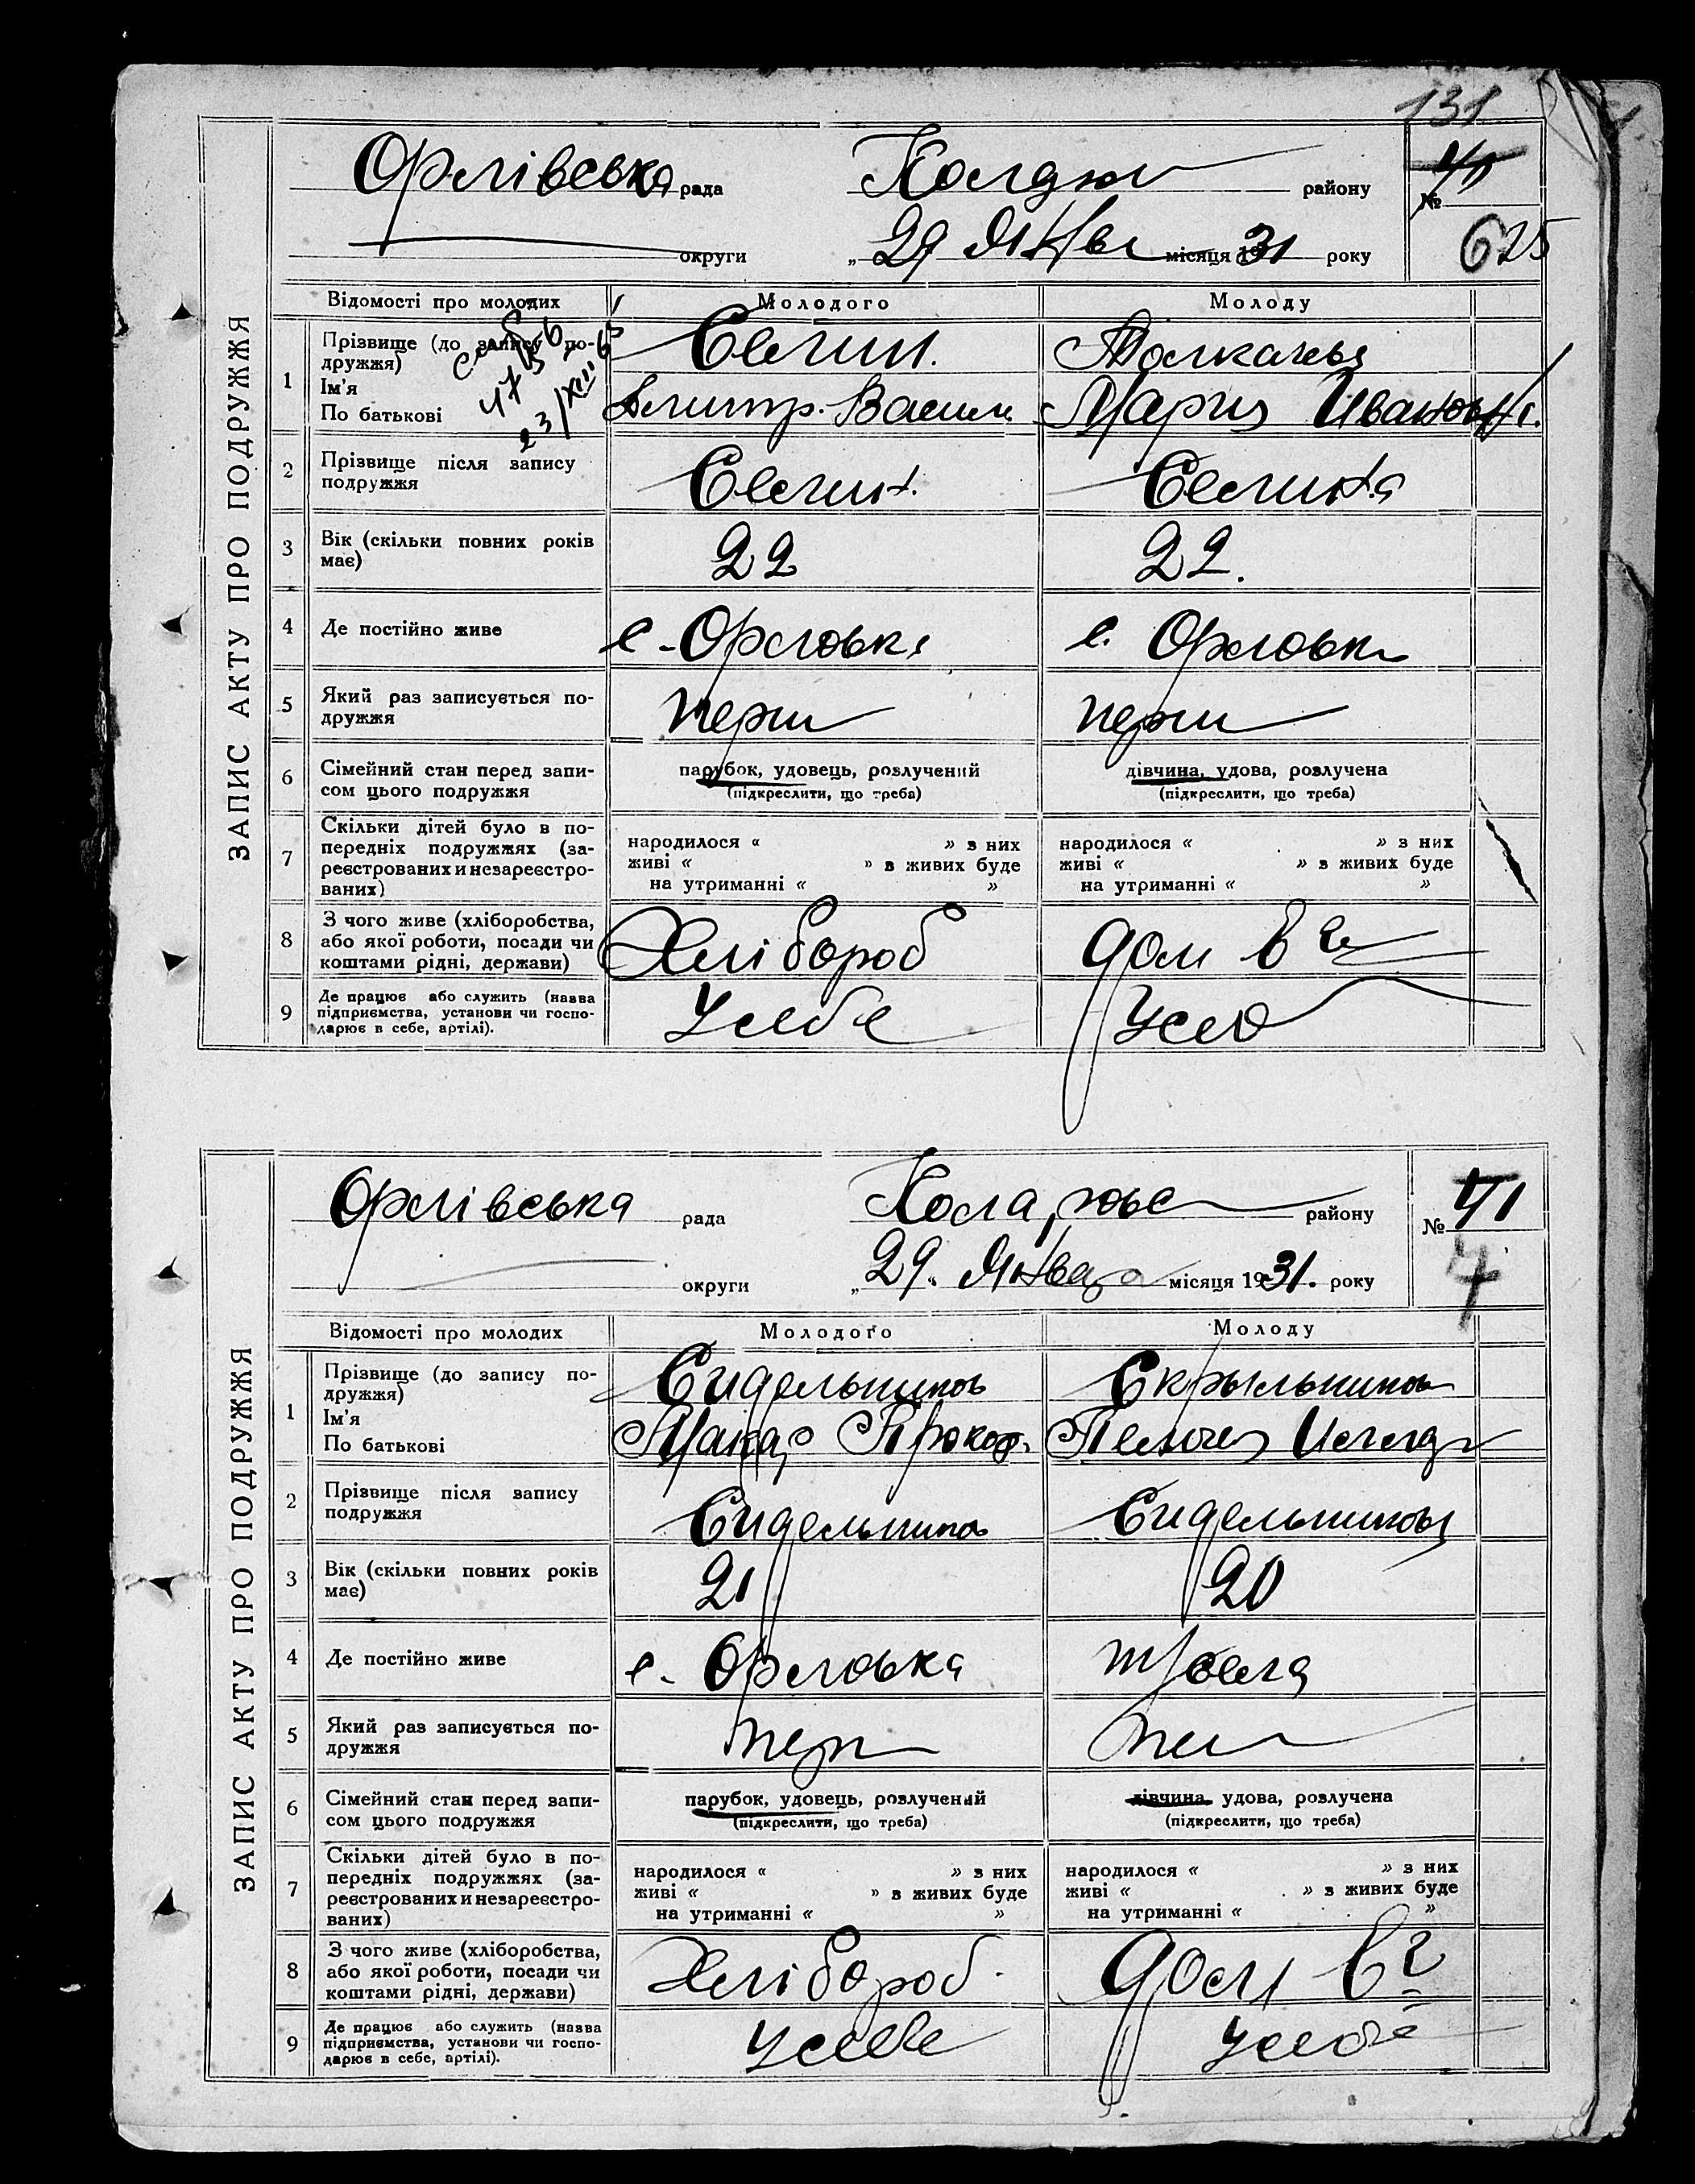 131
Орлівська рада Колдюж району
№
округи „ 29 Янвы місяця 1931 року 625
ЗАПИС АКТУ ПРО ПОДРУЖЖЯ
Відомості про молодих Молодого Молоду
1 Прізвище (до запису по-
дружжя) Селин. Толкачева
Ім'я
По батькові Дмитр. Васил. Мария Ивановн.
23/XII 65
2 Прізвище після запису
подружжя Селин. Селина
3 Вік (скільки повних років
має) 22 22.
4 Де постійно живе с. Орловка с. Орловка
5 Який раз записується по-
дружжя перш перш
6 Сімейний стан перед запи-
сом цього подружжя
парубок, удовець, розлучений дівчина, удова, розлучена
(підкреслити, що треба) (підкреслити, що треба)
7 Скільки дітей було в по-
передніх подружжях (за-
реєстрованих и незареєстро-
ваних)
народилося « » з них народилося « » з них
живі « » в живих буде живі « » в живих буде
на утриманні « » на утриманні « »
8 З чого живе (хліборобства,
або якої роботи, посади чи
коштами рідні, держави) Хлібороб дом
9 Де працює або служить (назва
підприємства, установи чи госпо-
дарює в себе, артілі). У себе
Орлівська рада району № 71
округи „ 29. Января місяця 1931. року 7
ЗАПИС АКТУ ПРО ПОДРУЖЖЯ
Відомості про молодих Молодого Молоду
1 Прізвище (до запису по-
дружжя) Сидельников Скрыльникова
Ім'я
По батькові Макар Прокоф. Пелагея
2 Прізвище після запису
подружжя Сидельников Сидельникова
3 Вік (скільки повних років
має) 21 20
4 Де постійно живе с. Орловка
5 Який раз записується по-
дружжя перш
6 Сімейний стан перед запи-
сом цього подружжя
парубок, удовець, розлучений дівчина, удова, розлучена
(підкреслити, що треба) (підкреслити, що треба)
7 Скільки дітей було в по-
передніх подружжях (за-
реєстрованих и незареєстро-
ваних)
народилося « » з них народилося « » з них
живі « » в живих буде живі « » в живих буде
на утриманні « » на утриманні « »
8 З чого живе (хліборобства,
або якої роботи, посади чи
коштами рідні, держави) Хлібороб. дом
9 Де працює або служить (назва
підприємства, установи чи госпо-
дарює в себе, артілі). У себе У себе